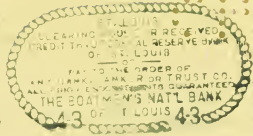 ST. LOUIS
CLEARING HOUSE OR RECEIVED
CREDIT FEDERAL RESERVE BANK
OF ST. LOUIS
OR
PAY TO THE ORDER OF
ANY BANK, BANKER OR TRUST CO.
ALL PRIOR ENDORSEMENTS GUARANTEED
THE BOATMEN'S NAT'L BANK
4-3 OF ST. LOUIS 4-3